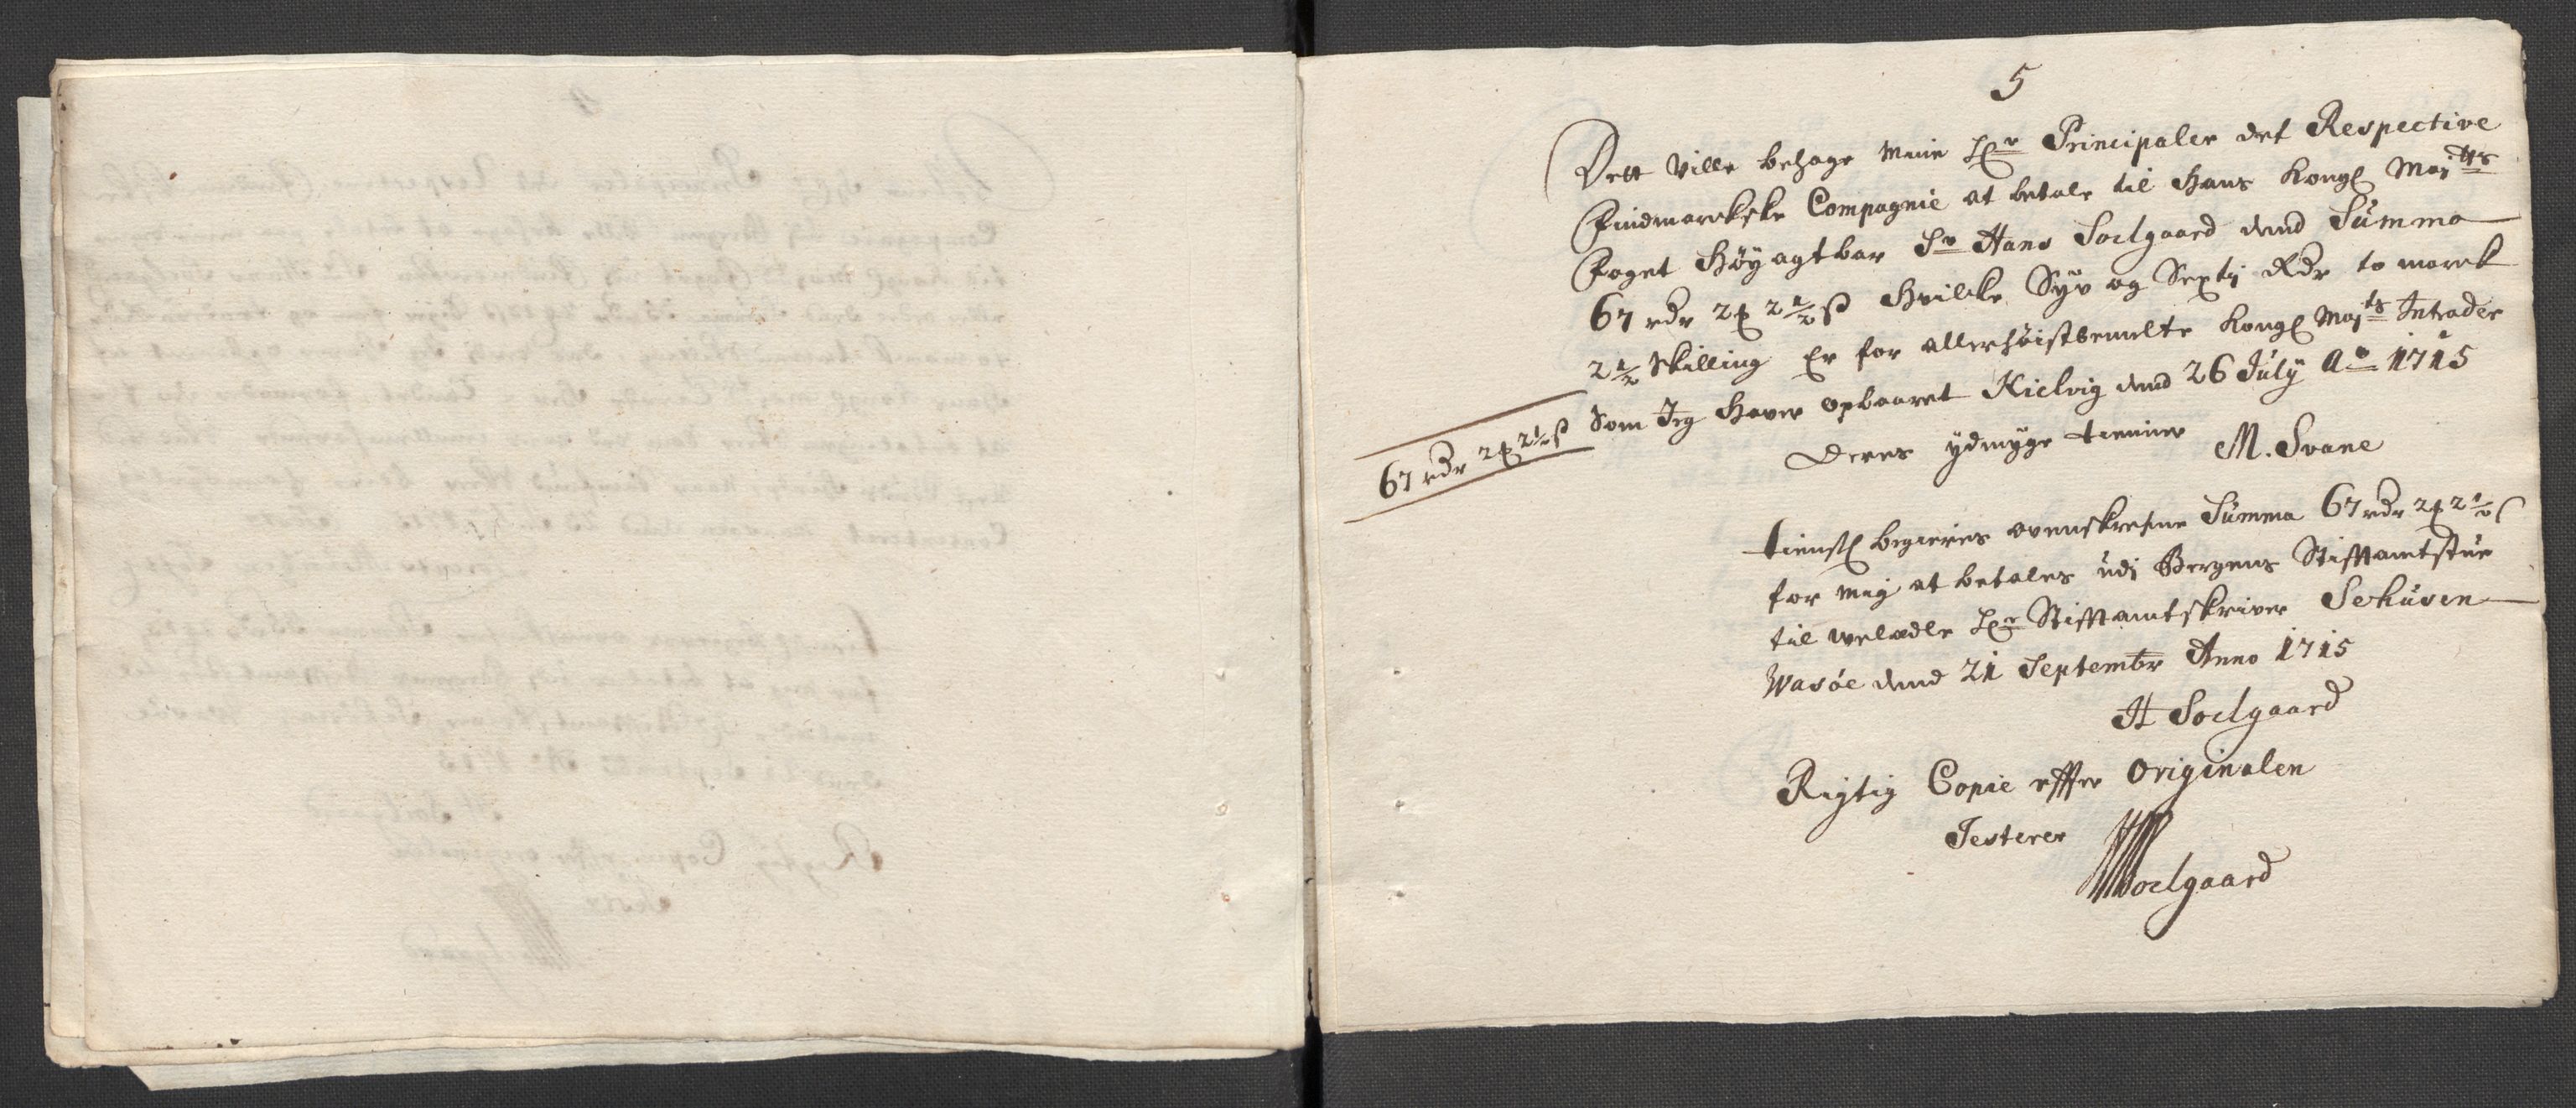 5
Dett Ville behage mine Hr Principaler det Respective
Findmarckske Compagnie at betale til Hans Kongl Maytts
Foget Höyagtbar Sr Hans Soelgaard dend Summa
67 rdr 2 ₰ 2 1/2 ß Hvilke Syv og Sexti Rdr to marck
2 1/2 Skilling Er for allerhöistbemelte Kongl Mayts Intrader
Som Jeg Haver opbaaret Kielvig dend 26 July Ao 1715
67 rdr 2 ₰ 2 1/2 ß
Deres ydmyge tienner M. Svane
tienstl begieres ovenskrefne Summa 67 rdr 2 ₰ 2 1/2 ß
for mig at betales udi Bergens Stifftamtstue
til velædle Hr Stifftamtskriver Schusen
Wasöe dend 21 Septembr Anno 1715
H Soelgaard
Rigtig Copie effter Originalen
Testerer
HSoelgaard